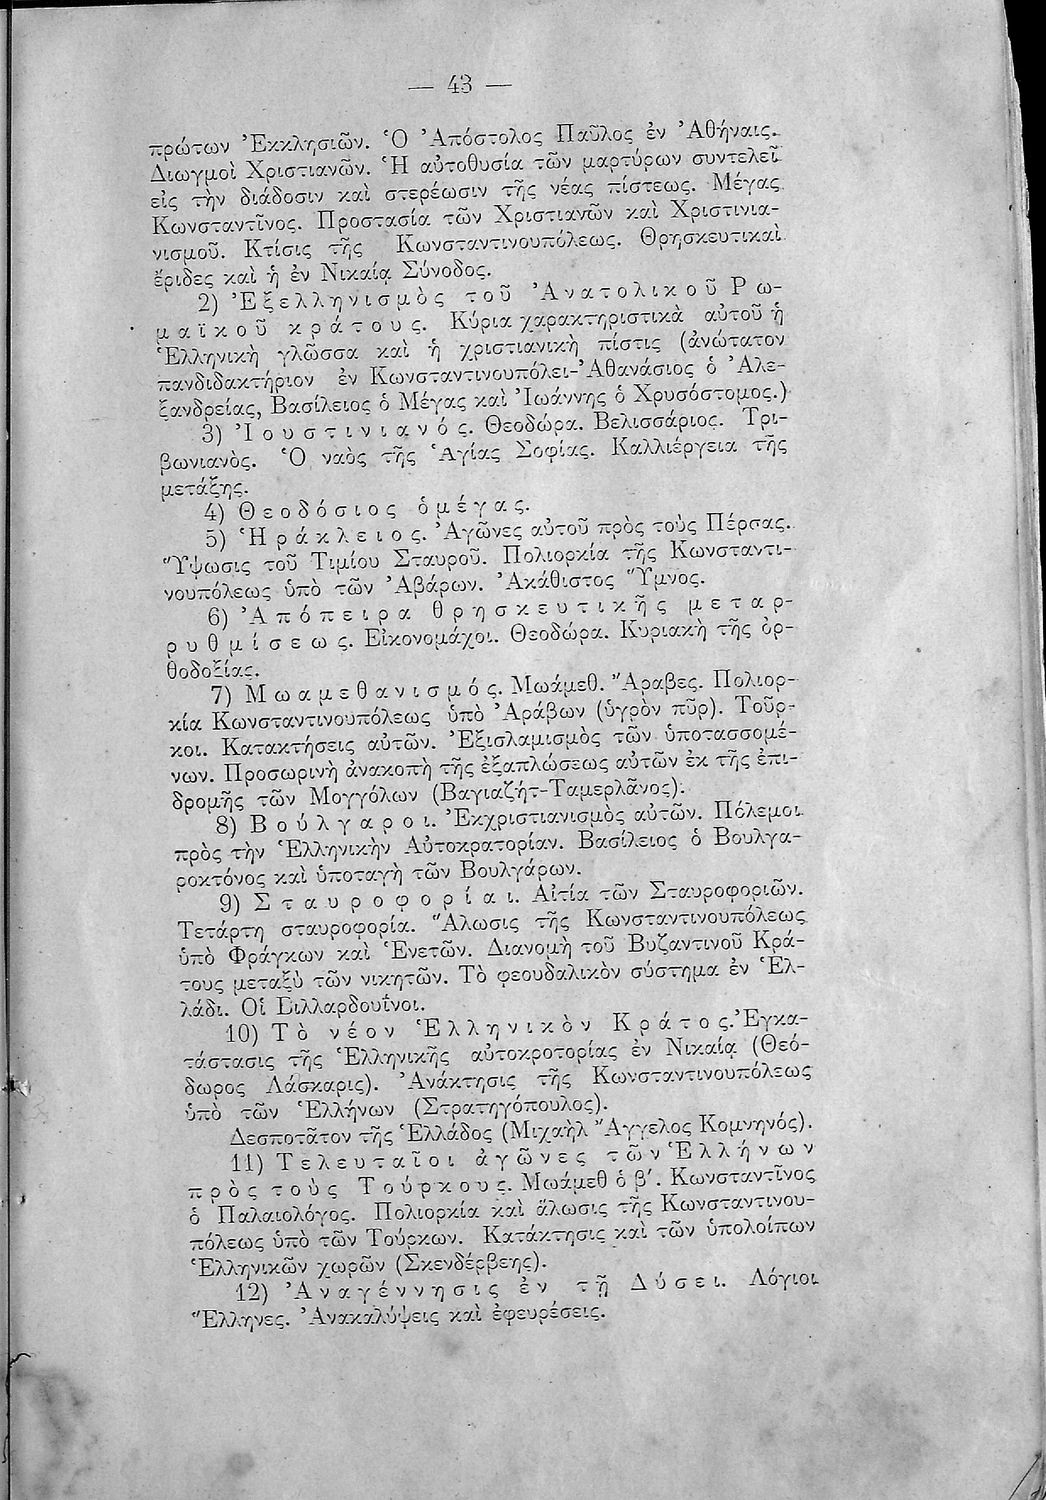 — 43 —
πρώτων Ἐκκλησιῶν. Ὁ Ἀπόστολος Παῦλος ἐν Ἀθήναις.
Διωγμοὶ Χριστιανῶν. Ἡ αὐτοθυσία τῶν μαρτύρων συντελεῖ
εἰς τὴν διάδοσιν καὶ στερέωσιν τῆς νέας πίστεως. Μέγας
Κωνσταντῖνος. Προστασία τῶν Χριστιανῶν καὶ Χριστινια-
νισμοῦ. Κτίσις τῆς Κωνσταντινουπόλεως. Θρησκευτικαὶ
ἔριδες καὶ ἡ ἐν Νικαίᾳ Σύνοδος.
2) Ἐξελληνισμὸς τοῦ Ἀνατολικοῦ Ρω-
μαϊκοῦ κράτους. Κύρια χαρακτηριστικὰ αὐτοῦ ἡ
Ἑλληνικὴ γλῶσσα καὶ ἡ χριστιανικὴ πίστις (ἀνώτατον
πανδιδακτήριον ἐν Κωνσταντινουπόλει-Ἀθανάσιος ὁ Ἀλε-
ξανδρείας, Βασίλειος ὁ Μέγας καὶ Ἰωάννης ὁ Χρυσόστομος.)
3) Ἰουστινιανός. Θεοδώρα. Βελισσάριος. Τρι-
βωνιανὸς. Ὁ ναὸς τῆς Ἁγίας Σοφίας. Καλλιέργεια τῆς
μετάξης.
4) Θεοδόσιος ὁ μέγας.
5) Ἡράκλειος. Ἀγῶνες αὐτοῦ πρὸς τοὺς Πέρσας.
Ὕψωσις τοῦ Τιμίου Σταυροῦ. Πολιορκία τῆς Κωνσταντι-
νουπόλεως ὑπὸ τῶν Ἀβάρων. Ἀκάθιστος Ὕμνος.
6) Ἀπόπειρα θρησκευτικῆς μεταρ-
ρυθμίσεως. Εἰκονομάχοι. Θεοδώρα. Κυριακὴ τῆς ὀρ-
θοδοξίας.
7) Μωαμεθανισμός. Μωάμεθ. Ἄραβες. Πολιορ-
κία Κωνσταντινουπόλεως ὑπὸ Ἀράβων (ὑγρὸν πῦρ). Τοῦρ-
κοι. Κατακτήσεις αὐτῶν. Ἐξισλαμισμὸς τῶν ὑποτασσομέ-
νων. Προσωρινὴ ἀνακοπὴ τῆς ἐξαπλώσεως αὐτῶν ἐκ τῆς ἐπι-
δρομῆς τῶν Μογγόλων (Βαγιαζήτ-Ταμερλᾶνος).
8) Βούλγαροι. Ἐκχριστιανισμὸς αὐτῶν. Πόλεμοι
πρὸς τὴν Ἑλληνικὴν Αὐτοκρατορίαν. Βασίλειος ὁ Βουλγα-
ροκτόνος καὶ ὑποταγὴ τῶν Βουλγάρων.
9) Σταυροφορίαι. Αἰτία τῶν Σταυροφοριῶν.
Τετάρτη σταυροφορία. Ἅλωσις τῆς Κωνσταντινουπόλεως
ὑπὸ Φράγκων καὶ Ἑνετῶν. Διανομὴ τοῦ Βυζαντινοῦ Κρά-
τους μεταξὺ τῶν νικητῶν. Τὸ φεουδαλικὸν σύστημα ἐν Ἑλ-
λάδι. Οἱ Βιλλαρδουῖνοι.
10) Τὸ νέον Ἑλληνικὸν Κράτος. Ἐγκα-
τάστασις τῆς Ἑλληνικῆς αὐτοκροτορίας ἐν Νικαίᾳ (Θεό-
δωρος Λάσκαρις). Ἀνάκτησις τῆς Κωνσταντινουπόλεως
ὑπὸ τῶν Ἑλλήνων (Στρατηγόπουλος).
Δεσποτᾶτον τῆς Ἑλλάδος (Μιχαὴλ Ἄγγελος Κομνηνός).
11) Τελευταῖοι ἀγῶνες τῶν Ἑλλήνων
πρὸς τοὺς Τούρκους. Μωάμεθ ὁ β΄. Κωνσταντῖνος
ὁ Παλαιολόγος. Πολιορκία καὶ ἅλωσις τῆς Κωνσταντινου-
πόλεως ὑπὸ τῶν Τούρκων. Κατάκτησις καὶ τῶν ὑπολοίπων
Ἑλληνικῶν χωρῶν (Σκενδέρβεης).
12) Ἀναγέννησις ἐν τῇ Δύσει. Λόγιοι
Ἕλληνες. Ἀνακαλύψεις καὶ ἐφευρέσεις.